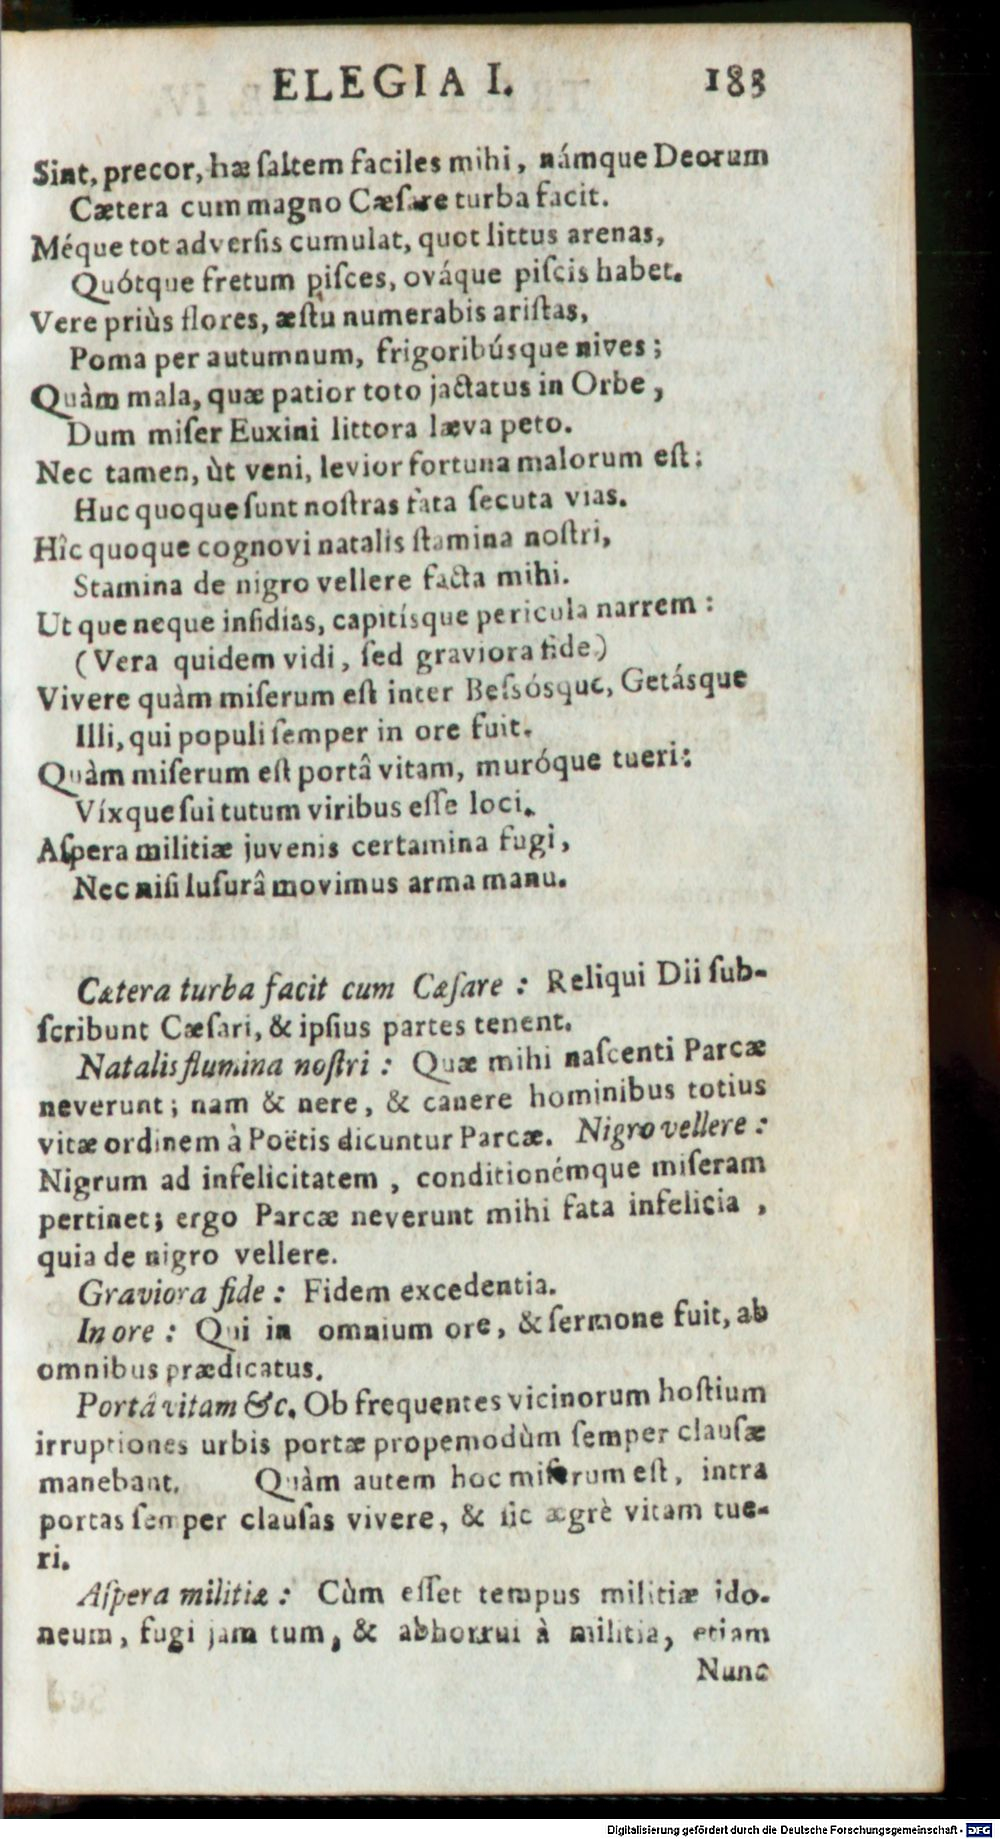 ELEGIA I. 183
Sint, precor, hæ ſaltem faciles mihi, námque Deorum
Cætera cum magno Cæſare turba facit.
Méque tot adverſis cumulat, quot littus arenas,
Quótque fretum piſces, ováque piſcis habet.
Vere priùs flores, æſtu numerabis ariſtas,
Poma per autumnum, frigoribúsque nives;
Quàm mala, quæ patior toto jactatus in Orbe,
Dum miſer Euxini littora læva peto.
Nec tamen, ùt veni, levior fortuna malorum eſt:
Huc quoque ſunt noſtras fata ſecuta vias.
Hîc quoque cognovi natalis ſtamina noſtri,
Stamina de nigro vellere facta mihi.
Ut que neque inſidias, capitísque pericula narrem:
(Vera quidem vidi, ſed graviora fide.)
Vivere quàm miſerum eſt inter Beſsósque, Getásque
Illi, qui populi ſemper in ore fuit.
Quàm miſerum eſt portâ vitam, muróque tueri:
Víxque ſui tutum viribus eſſe loci.
Aſpera militiæ juvenis certamina fugi,
Nec niſi luſurâ movimus arma manu.
Cætera turba facit cum Cæſare: Reliqui Dii ſub-
ſcribunt Cæſari, & ipſius partes tenent.
Natalis flumina noſtri: Quæ mihi naſcenti Parcæ
neverunt; nam & nere, & canere hominibus totius
vitæ ordinem à Poëtis dicuntur Parcæ. Nigro vellere:
Nigrum ad infelicitatem, conditionémque miſeram
pertinet; ergo Parcæ neverunt mihi fata infelicia,
quia de nigro vellere.
Graviora fide: Fidem excedentia.
In ore: Qui in omnium ore, & ſermone fuit, ab
omnibus prædicatus.
Portâ vitam &c. Ob frequentes vicinorum hoſtium
irruptiones urbis portæ propemodùm ſemper clauſæ
manebant. Quàm autem hoc miſerum eſt, intra
portas ſemper clauſas vivere, & ſic ægrè vitam tue-
ri.
Aſpera militiæ: Cùm eſſet tempus militiæ ido-
neum, fugi jam tum, & abhorrui à militia, etiam
Nunc
Digitalisierung gefördert durch die Deutsche Forschungsgemeinschaft - DFG